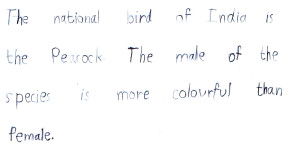 The national bird of India is
the Peacock The male of the
species is more colourful than
female.